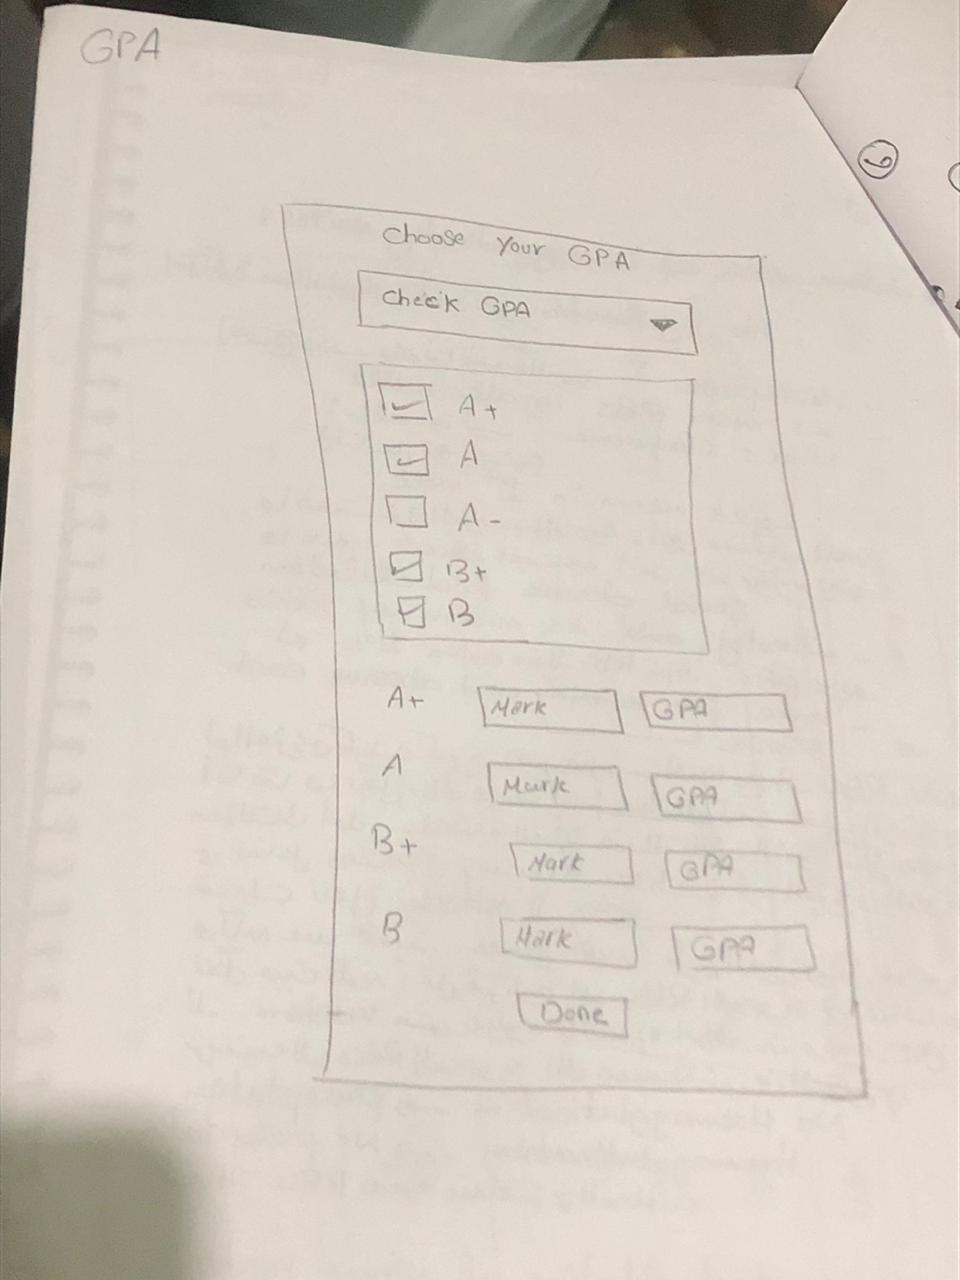 GPA
6
Choose Your GPA
Check GPA
A+
A
A-
B+
B
A+ Mark GPA
A Mark GPA
B+ Mark GPA
B Mark GPA
Done